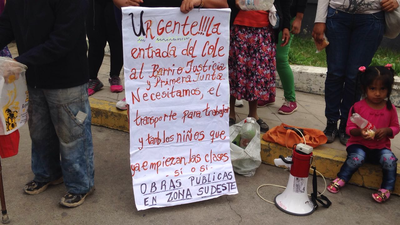 Urgente!!! la
entrada del Cole
al Barrio Justicia
y Primera Junta
Necesitamos, el
transporte para trabajar
y tanblos niños que
ya empiezan las clases
si o si
OBRAS PUBLICAS
EN ZONA SUDESTE